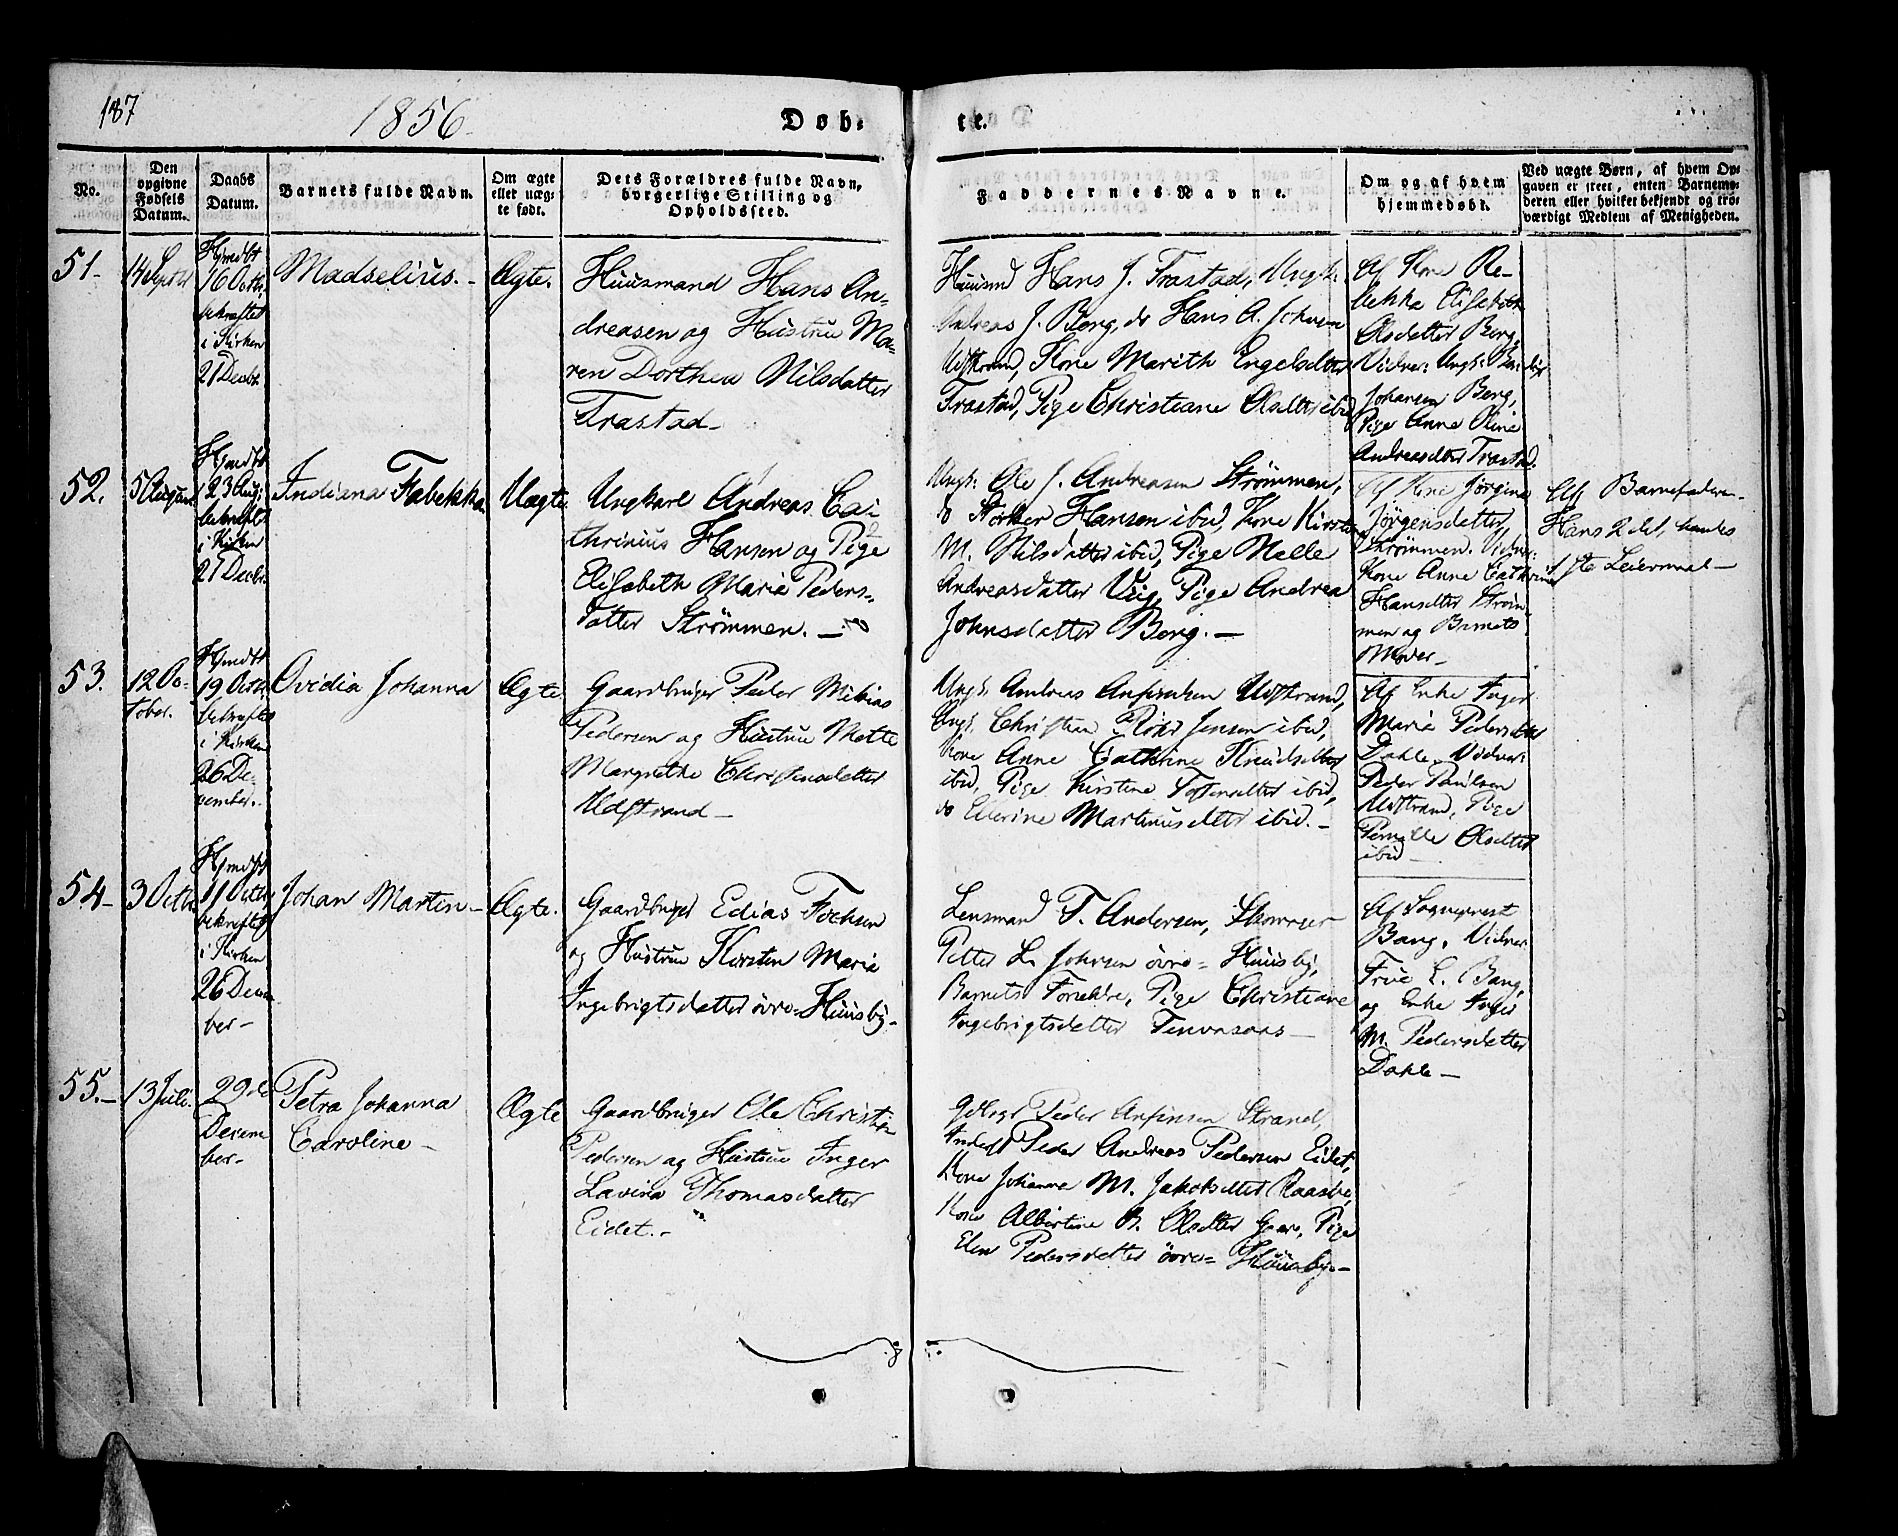 187
1856
Døb-
te.
No.
Den opgivne Fødsels Datum.
Daabs Datum.
Barnets fulde Navn.
Om ægte eller uægte født.
Dets Forældres fulde Navn, borgerlige Stilling og Opholdssted.
Faddernes Navne.
Om og af hvem hjemmedøbt.
Ved uægte Børn, af hvem Opgaven er skeet, enten Barnemoderen eller hvilket bekjendt og troværdigt Medlem af Menigheden.
51.
14 Septbr
Hjmdbt
16 Octbr
bekræftet
i Kirken
21 Decbr.
Madselius.
Ægte.
Huusmand Hans An-
dreasen og Hustrue Ma-
ren Dorthea Nilsdatter
Trastad
Huusmd Hans J. Trastad, Ungk.
Andreas J. Berg, do Hans A. Johnsen
Udstrand, Kone Marith Engelsdtter
Trastad, Pige Christiane Olsdtter ibid
Af Kone Re-
bekka Elisabeth
Olsdatter Berg.
Vidner: Ungk:
Johansen Berg,
Pige Anne Oline
Andreasdtter Trastad.
52.
5 August
Hjmdbt
23 Aug:
bekræft.
i Kirken
21 Decbr.
Indiana Fabekka
Uægte
Ungkarl Andreas Ca-
thrinius Hansen og Pige
Elisabeth Maria Peders-
datter Strømmen.
Ungk: Ole J. Andreasen Strømmen,
do Størker Hansen ibid, Kone Kirsten
M. Nilsdatter ibid, Pige Melle
Andreasdatter Vig, Pige Andrea
Johnsdatter Berg.
Af Kone Jørgine
Jørgensdetter,
Strømmen. Vidner:
Kone Anne Cathrine
Hansdtter Strøm-
men og Barnets
Moder
Af Barnefaderen
Hans 2det, hendes
1ste Leiermaal
53.
12 Oc-
tober.
Hjmdbt
19 Octbr
bekræft.
i Kirken
26 De-
cember.
Ovidia Johanna
Ægte
Gaardbruger Peder Mikias
Pedersen og Hustrue Mette
Margrethe Christensdatter
Udstrand
Ungk: Andreas Anfinsen Udstrand,
Ungk. Christian Jensen ibid,
Kone Anne Cathrine Knudsdtter
ibid, Pige Kirstine ibid,
do Ellerine Martinusdetter ibid.
Af Enke Inger
Maria Pedersdtter
Dahle. Vidner:
Peder Paulsen
Udstrand, Pige
Pernille Olsdtter
ibid
54
3 Octbr.
Hjmdbt
11 Octbr
bekræftet
i Kirken
26 Decem
ber
Johan Martin
Ægte.
Gaardbruger Edias Fochsen
og Hustrue Kirsten Maria
Ingebrigtsdatter övre-Huusby.
Lensmand T. Andersen,
Petter L. Johnsen övre-Huusby,
Barnets Forældre, Pige Christiane
Ingebrigtsdetter
Af Sogneprest
Bang, Vidner
Frue L. Bang,
og Enke Inger
M. Pedersdetter
Dahle
55.
13 Juli.
29de
Decem
ber
Petra Johanna
Caroline
Ægte
Gaardbruger Ole Christian
Pedersen og Hustrue Inger
Lavina Thomasdatter
Eidet.
Gdbrgr Peder Anfinsen Strand,
Inderst Peder Andreas Pedersen Eidet,
Kone Johanna M. Jakobsdtter
Kone Albertine B. Olsdtter Pige
Elen Pedersdetter övre-Huusby.